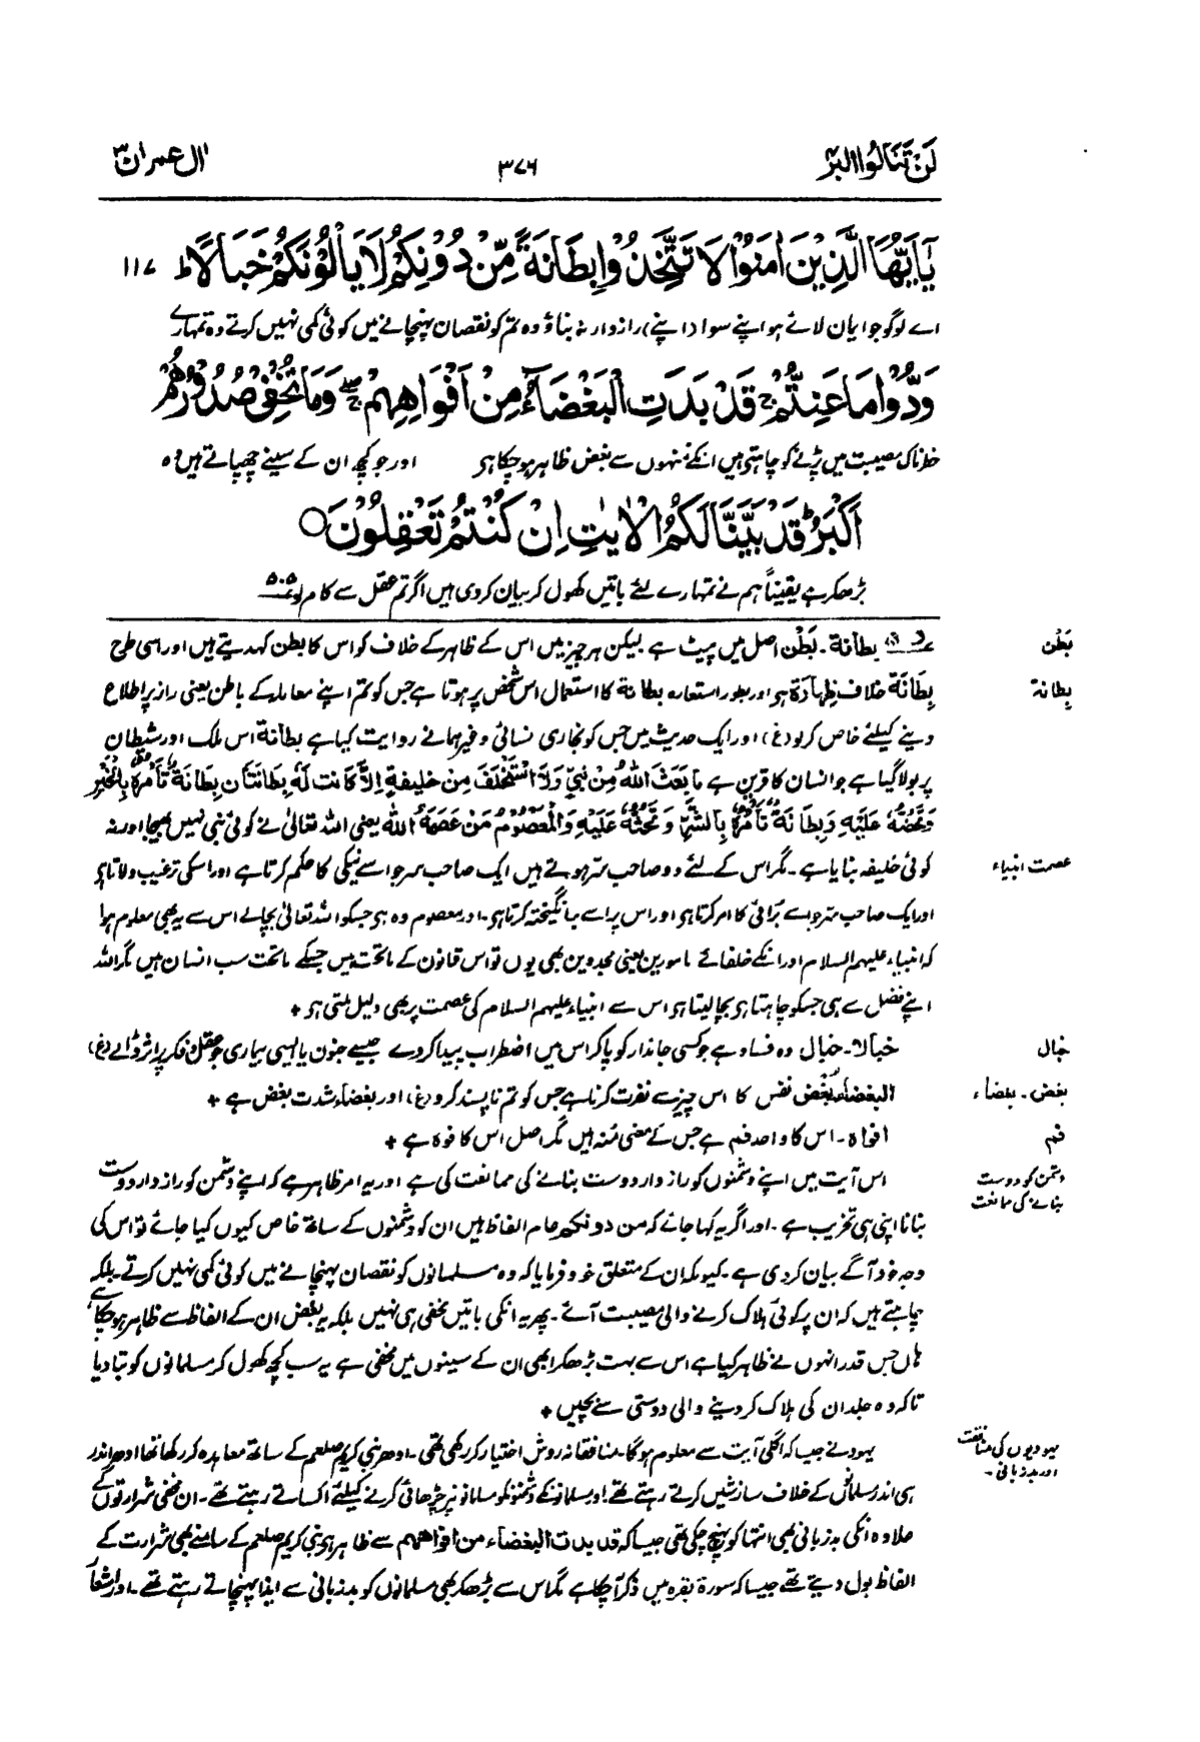 لَنْ تَنَالُوا الْبِرَّ
۳۷۶
اٰل عمران ۳
يٰٓاَيُّهَا الَّذِيْنَ اٰمَنُوْا لَا تَتَّخِذُوْا بِطَانَةً مِّنْ دُوْنِكُمْ لَا يَاْلُوْنَكُمْ خَبَالًا ط ۱۱۷
اے لوگو جو ایمان لائے ہو اپنے سوا (اپنے) رازدار نہ بناؤ وہ تم کو نقصان پہنچانے میں کوئی کمی نہیں کرتے وہ تمہارے
وَدُّوْا مَا عَنِتُّمْ ج قَدْ بَدَتِ الْبَغْضَآءُ مِنْ اَفْوَاهِهِمْ ج وَمَا تُخْفِيْ صُدُوْرُهُمْ
خطرناک مصیبت میں پڑنے کو چاہتے ہیں انکے مُنہوں سے بغض ظاہر ہوچکا ہو اور جو کچھ ان کے سینے چھپاتے ہیں وہ
اَكْبَرُ ط قَدْ بَيَّنَّا لَكُمُ الْاٰيٰتِ اِنْ كُنْتُمْ تَعْقِلُوْنَ ○
بڑھکر ہے یقیناً ہم نے تمہارے لئے باتیں کھول کر بیان کردی ہیں اگر تم عقل سے کام لو ۵۰۵
بَطْن
بطانة ۔ بَطْن اصل میں پیٹ ہے لیکن ہر چیز میں اس کے ظاہر کے خلاف کو اس کا بطن کہدیتے ہیں اور اسی طرح
بِطانة
بِطَانَة خلاف ظِهَارَة ہو اور بطور استعارہ بطانة کا استعمال اس شخص پر ہوتا ہے جس کو تم اپنے معاملہ کے باطن یعنی راز پر اطلاع
دینے کیلئے خاص کرلو (غ) اور ایک حدیث میں جس کو بخاری نسائی وغیرہمانے روایت کیا ہے بطانة اس ملک اور شیطان
پر بولا گیا ہے جو انسان کا قرین ہے مَا بَعَثَ اللهُ مِنْ نَبِيٍّ وَلَا اسْتَخْلَفَ مِنْ خَلِيفَةٍ اِلَّا كَانَت لَهُ بِطَانَتَانِ بِطَانَةٌ تَأْمُرُهُ بِالْخَيْرِ
وَتَحُضُّهُ عَلَيْهِ وَبِطَانَةٌ تَأْمُرُهُ بِالشَّرِّ وَتَحُثُّهُ عَلَيْهِ وَالْمَعْصُومُ مَنْ عَصَمَهُ الله یعنی اللہ تعالیٰ نے کوئی نبی نہیں بھیجا اور نہ
عصمت انبیاء
کوئی خلیفہ بنایا ہے ۔ مگر اس کے لئے دو صاحب سّر ہوتے ہیں ایک صاحب سر جو اسے نیکی کا حکم کرتا ہے اور اسکی ترغیب دلاتا ہو
اور ایک صاحب سّر جو اسے بُرائی کا امر کرتا ہو اور اس پر اسے برانگیختہ کرتا ہو۔ اور معصوم وہ ہو جسکو اللہ تعالیٰ بچالے اس سے یہ بھی معلوم ہوا
کہ انبیاء علیہم السلام اور انکے خلفائے مامورین یعنی مجددین بھی یوں تو اس قانون کے ماتحت ہیں جسکے ماتحت سب انسان ہیں مگر اللہ
اپنے فضل سے ہی جسکو چاہتا ہو بچا لیتا ہو اس سے انبیاء علیہم السلام کی عصمت پر بھی دلیل ملتی ہو +
خبال
خبالا۔ خَبَال وہ فساد ہے جو کسی جاندار کو پاکر اس میں اضطراب پیدا کردے جیسے جنون یا ایسی بیماری جو عقل و فکر پر اثر ڈالے (غ)
بغض ۔ بغضاء
البغضاء بُغض نفس کا اس چیز سے نفرت کرنا ہے جس کو تم ناپسند کرو (غ) اور بغضاء شدت بغض ہے +
فم
افواہ ۔ اس کا واحد فم ہے جس کے معنی مُنہ ہیں مگر اصل اس کا فوہ ہے +
دشمن کو دوست
بنانے کی ممانعت
اس آیت میں اپنے دشمنوں کو رازدار دوست بنانے کی ممانعت کی ہے اور یہ امر ظاہر ہے کہ اپنے دشمن کو رازدار دوست
بنانا اپنی ہی تخریب ہے ۔ اور اگر یہ کہا جائے کہ من دونکم عام الفاظ ہیں ان کو دشمنوں کے ساتھ خاص کیوں کیا جائے تو اس کی
وجہ خود آگے بیان کردی ہے ۔ کیونکہ ان کے متعلق خود فرمایا کہ وہ مسلمانوں کو نقصان پہنچانے میں کوئی کمی نہیں کرتے ۔ بلکہ
چاہتے ہیں کہ ان پر کوئی ہلاک کرنے والی مصیبت آئے ۔ پھر یہ انکی باتیں مخفی ہی نہیں بلکہ یہ بغض ان کے الفاظ سے ظاہر ہوچکا ہے
ہاں جس قدر انہوں نے ظاہر کیا ہے اس سے بہت بڑھکر ابھی ان کے سینوں میں مخفی ہے یہ سب کچھ کھول کر مسلمانوں کو بتا دیا
تاکہ وہ جلد ان کی ہلاک کردینے والی دوستی سے بچیں +
یہودیوں کی منافقت
اور بدزبانی ۔
یہود نے جیسا کہ اگلی آیت سے معلوم ہوگا ۔ منافقانہ روش اختیار کر رکھی تھی ۔ ادھر نبی کریم صلعم کے ساتھ معاہدہ کر رکھا تھا ادھر اندر
ہی اندر مسلمانوں کے خلاف سازشیں کرتے رہتے تھے اور مسلمانوں کے دشمنوں کو مسلمانوں پر چڑھائی کرنے کیلئے اکساتے رہتے تھے ۔ ان مخفی شرارتوں کے
علاوہ انکی بدزبانی بھی انتہا کو پہنچ چکی تھی جیسا کہ قد بدت البغضاء من افواههم سے ظاہر ہو نبی کریم صلعم کے سامنے بھی شرارت کے
الفاظ بول دیتے تھے جیسا کہ سورۃ بقرہ میں ذکر آچکا ہے مگر اس سے بڑھکر بھی مسلمانوں کو بدزبانی سے ایذا پہنچاتے رہتے تھے ۔ اور اشعار